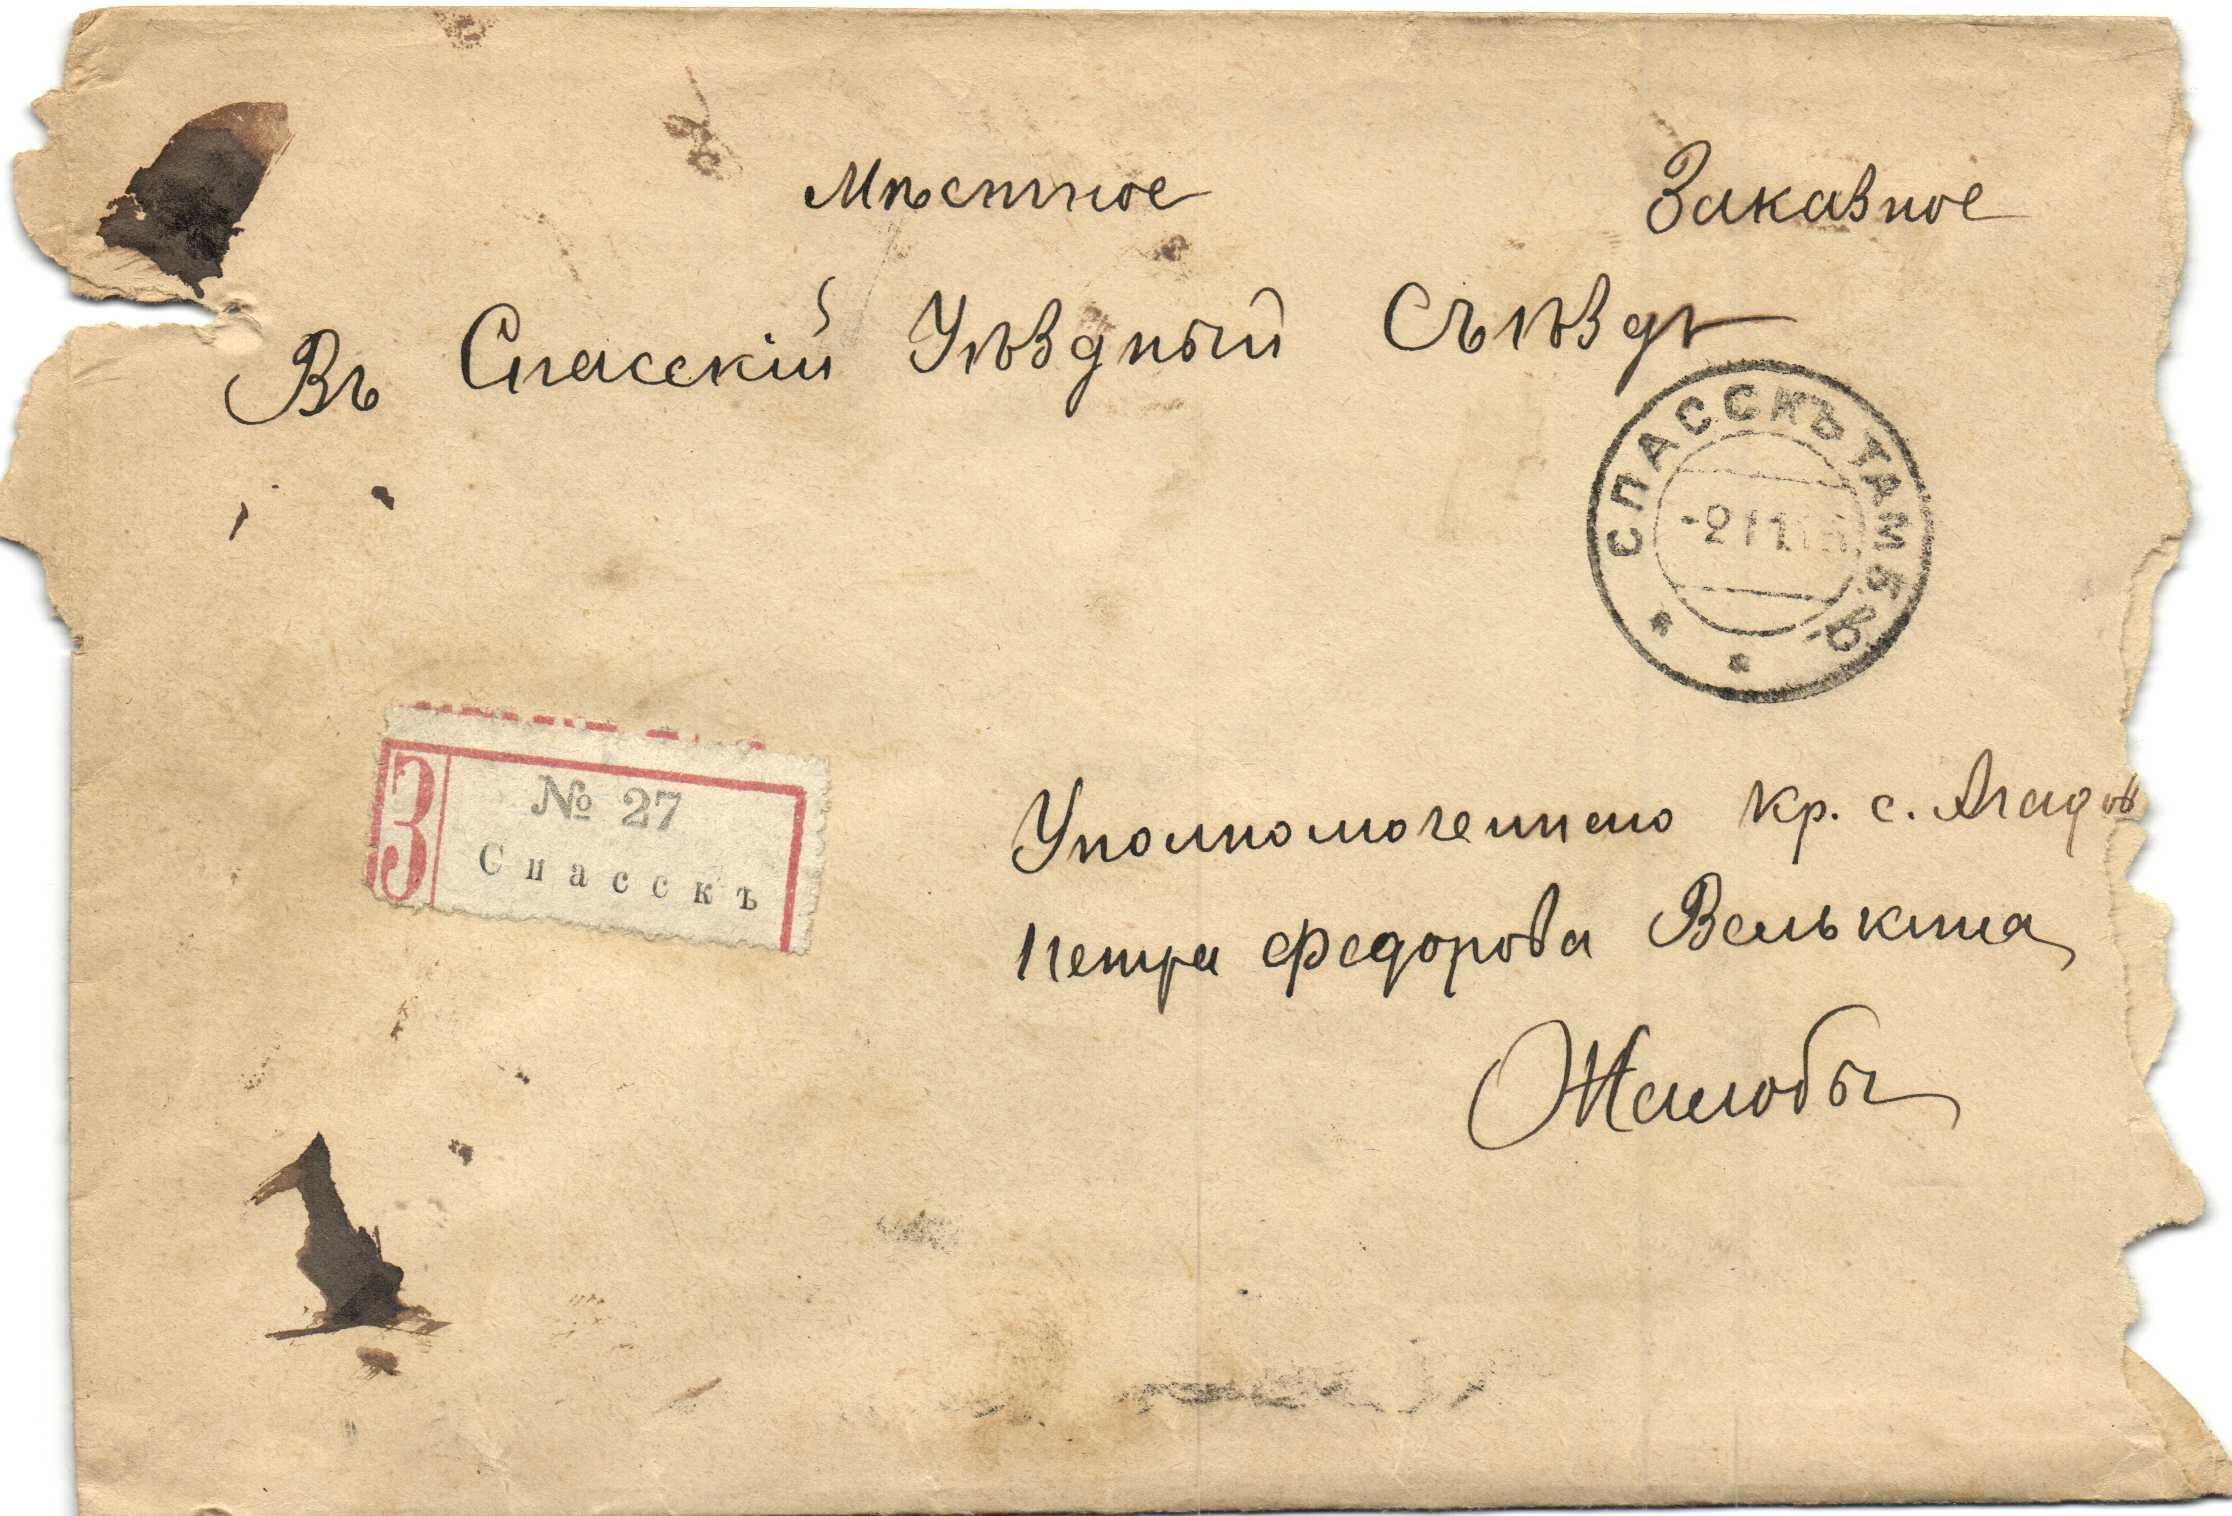 Мѣстное Заказное
Въ Спасскій Уѣздный Съѣздъ
СПАССКЪ ТАМБ. Г.
З № 27
Спасскъ
Уполномоченнаго кр. с.
Петра Федорова Велькина
Жалобы